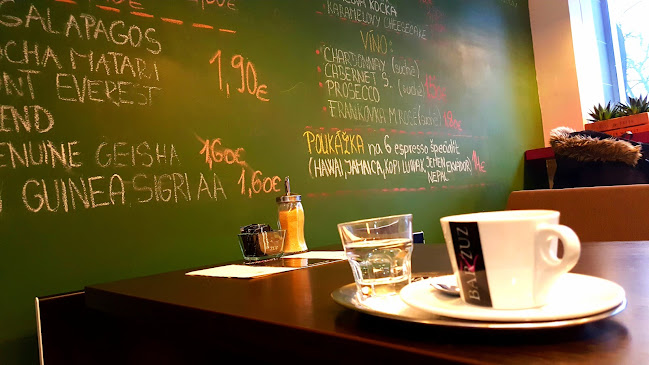 GALAPAGOS
MATARI
EVEREST
1,90€
GENUINE GEISHA 1,60€
GUINEA SIGRI AA 1,60€
KOČKA
KARAMELOVÝ CHEESECAKE
VÍNO:
* CHARDONNAY (suché)
* CABERNET S. (suché)
* PROSECCO
* FRANKOVKA M. ROSÉ (suché)
POUKÁŽKA na 6 espresso špecialít
(HAWAI, JAMAICA, KOPI LUWAK, JEMEN, EKVÁDOR)
NEPAL
BARZUZ